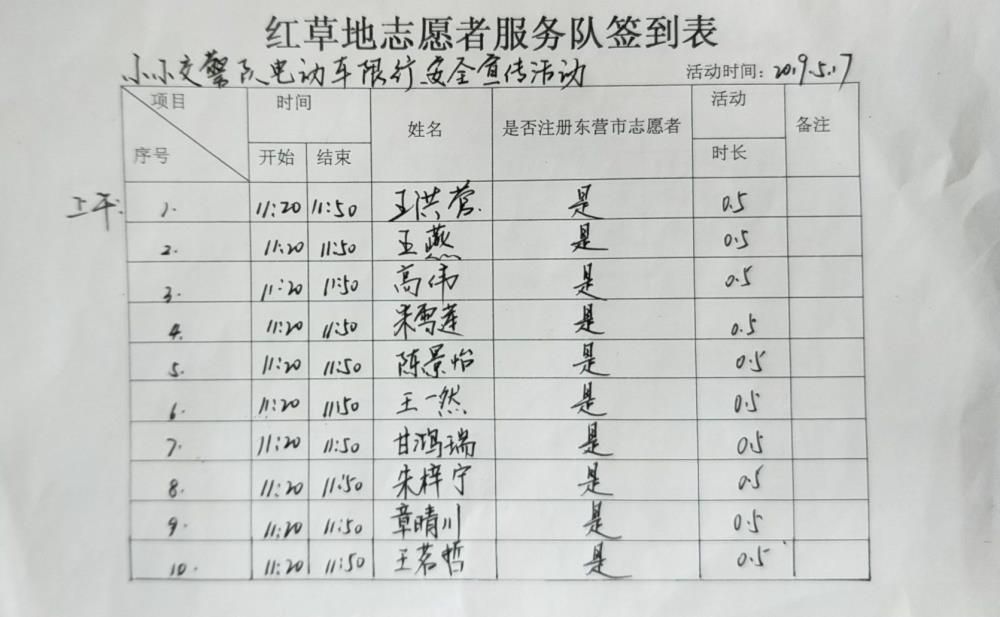 红草地志愿者服务队签到表
小小交警队电动车限行安全宣传活动 活动时间：2019.5.17
项目 时间 姓名 是否注册东营市志愿者 活动 备注
序号 开始 结束 时长
上午: 1. 11:20 11:50 王洪营. 是 0.5
2. 11:20 11:50 王燕 是 0.5
3. 11:20 11:50 高伟 是 0.5
4. 11:20 11:50 朱雪莲 是 0.5
5. 11:20 11:50 陈景怡 是 0.5
6. 11:20 1150 王一然 是 0.5
7. 11:20 11:50 甘鸿瑞 是 0.5
8. 11:20 11:50 朱梓宁 是 0.5
9. 11:20 11:50 章晴川 是 0.5
10. 11:20 11:50 王茗哲 是 0.5